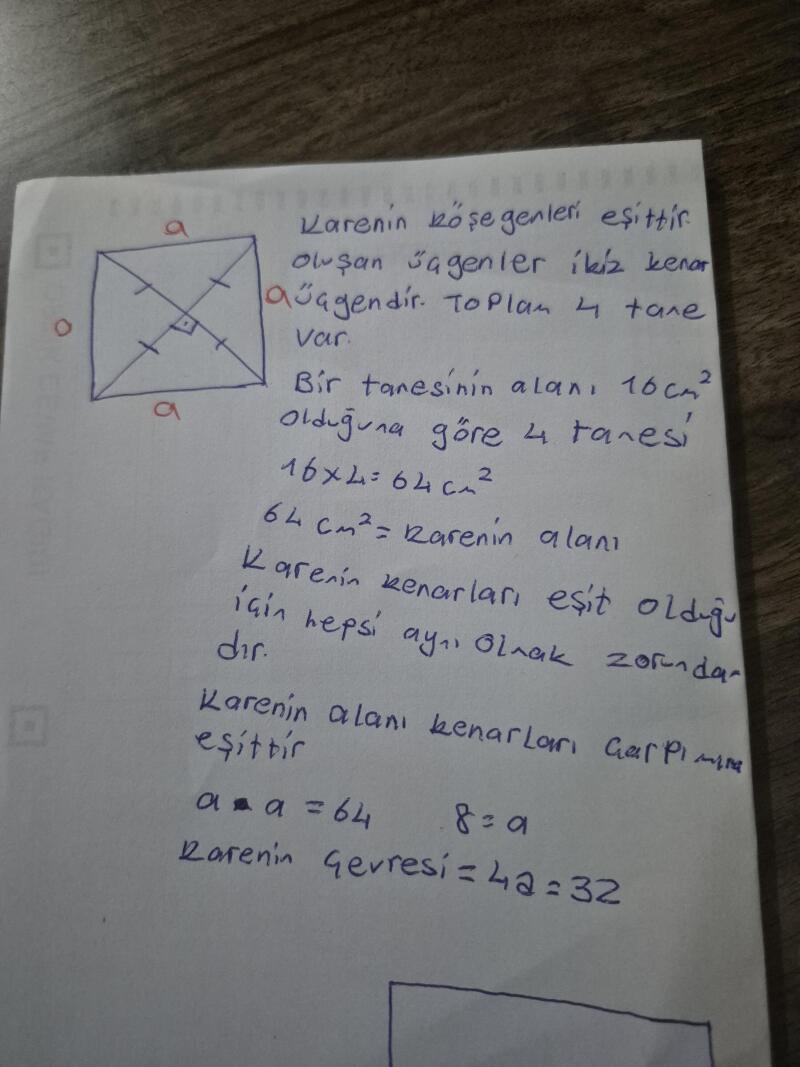 a
a
a
a
Karenin köşegenleri eşittir.
oluşan üçgenler ikiz kenar
üçgendir. Toplam 4 tane
var.
Bir tanesinin alanı 16 cm²
olduğuna göre 4 tanesi
16x4= 64 cm²
64 cm² = Karenin alanı
Karenin kenarları eşit olduğu
için hepsi aynı olmak zorunda
dır.
Karenin alanı kenarları çarpımına
eşittir
a . a = 64 8 = a
Karenin çevresi = 4a = 32